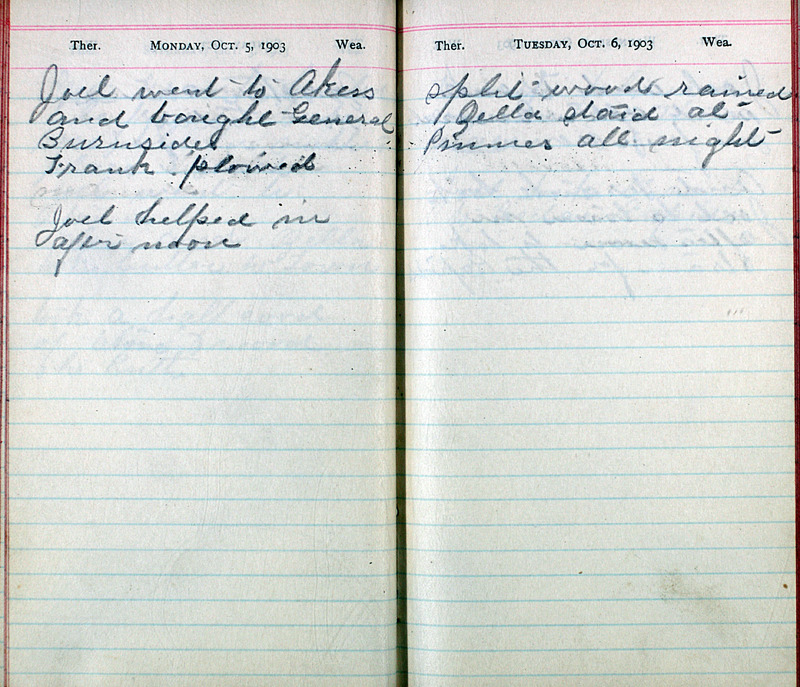 Ther. MONDAY, OCT. 5, 1903 Wea.
Joel went to Akess
and bought General
Burnsides
Frank plowed
Joel helped in
after noon
Ther. TUESDAY, OCT. 6, 1903 Wea.
split wood rained
Della staid at
all night